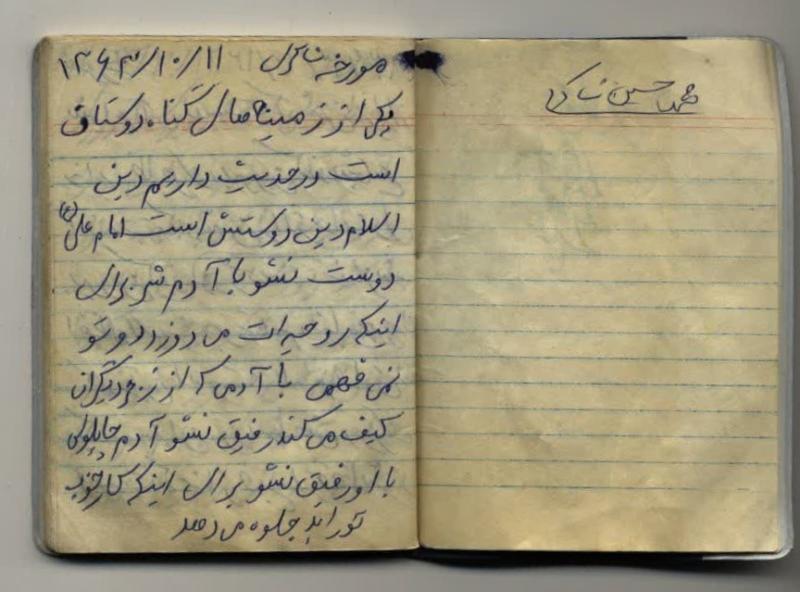 مورخه ۱۳۶۳/۱۰/۱۱
یکی از زمینه‌های گناه دوستان
است در حدیث داریم دین
اسلام دین دوستش است امام علی (ع)
دوست نشو با آدم شر برای
اینکه روحیه‌ات می‌دزدد و تو
نمی فهمی با آدمی که از زجر دیگران
کیف می کند رفیق نشو آدم چاپلوس
با او رفیق نشو برای اینکه کار خوب
تو را بد جلوه می دهد
محمد حسین